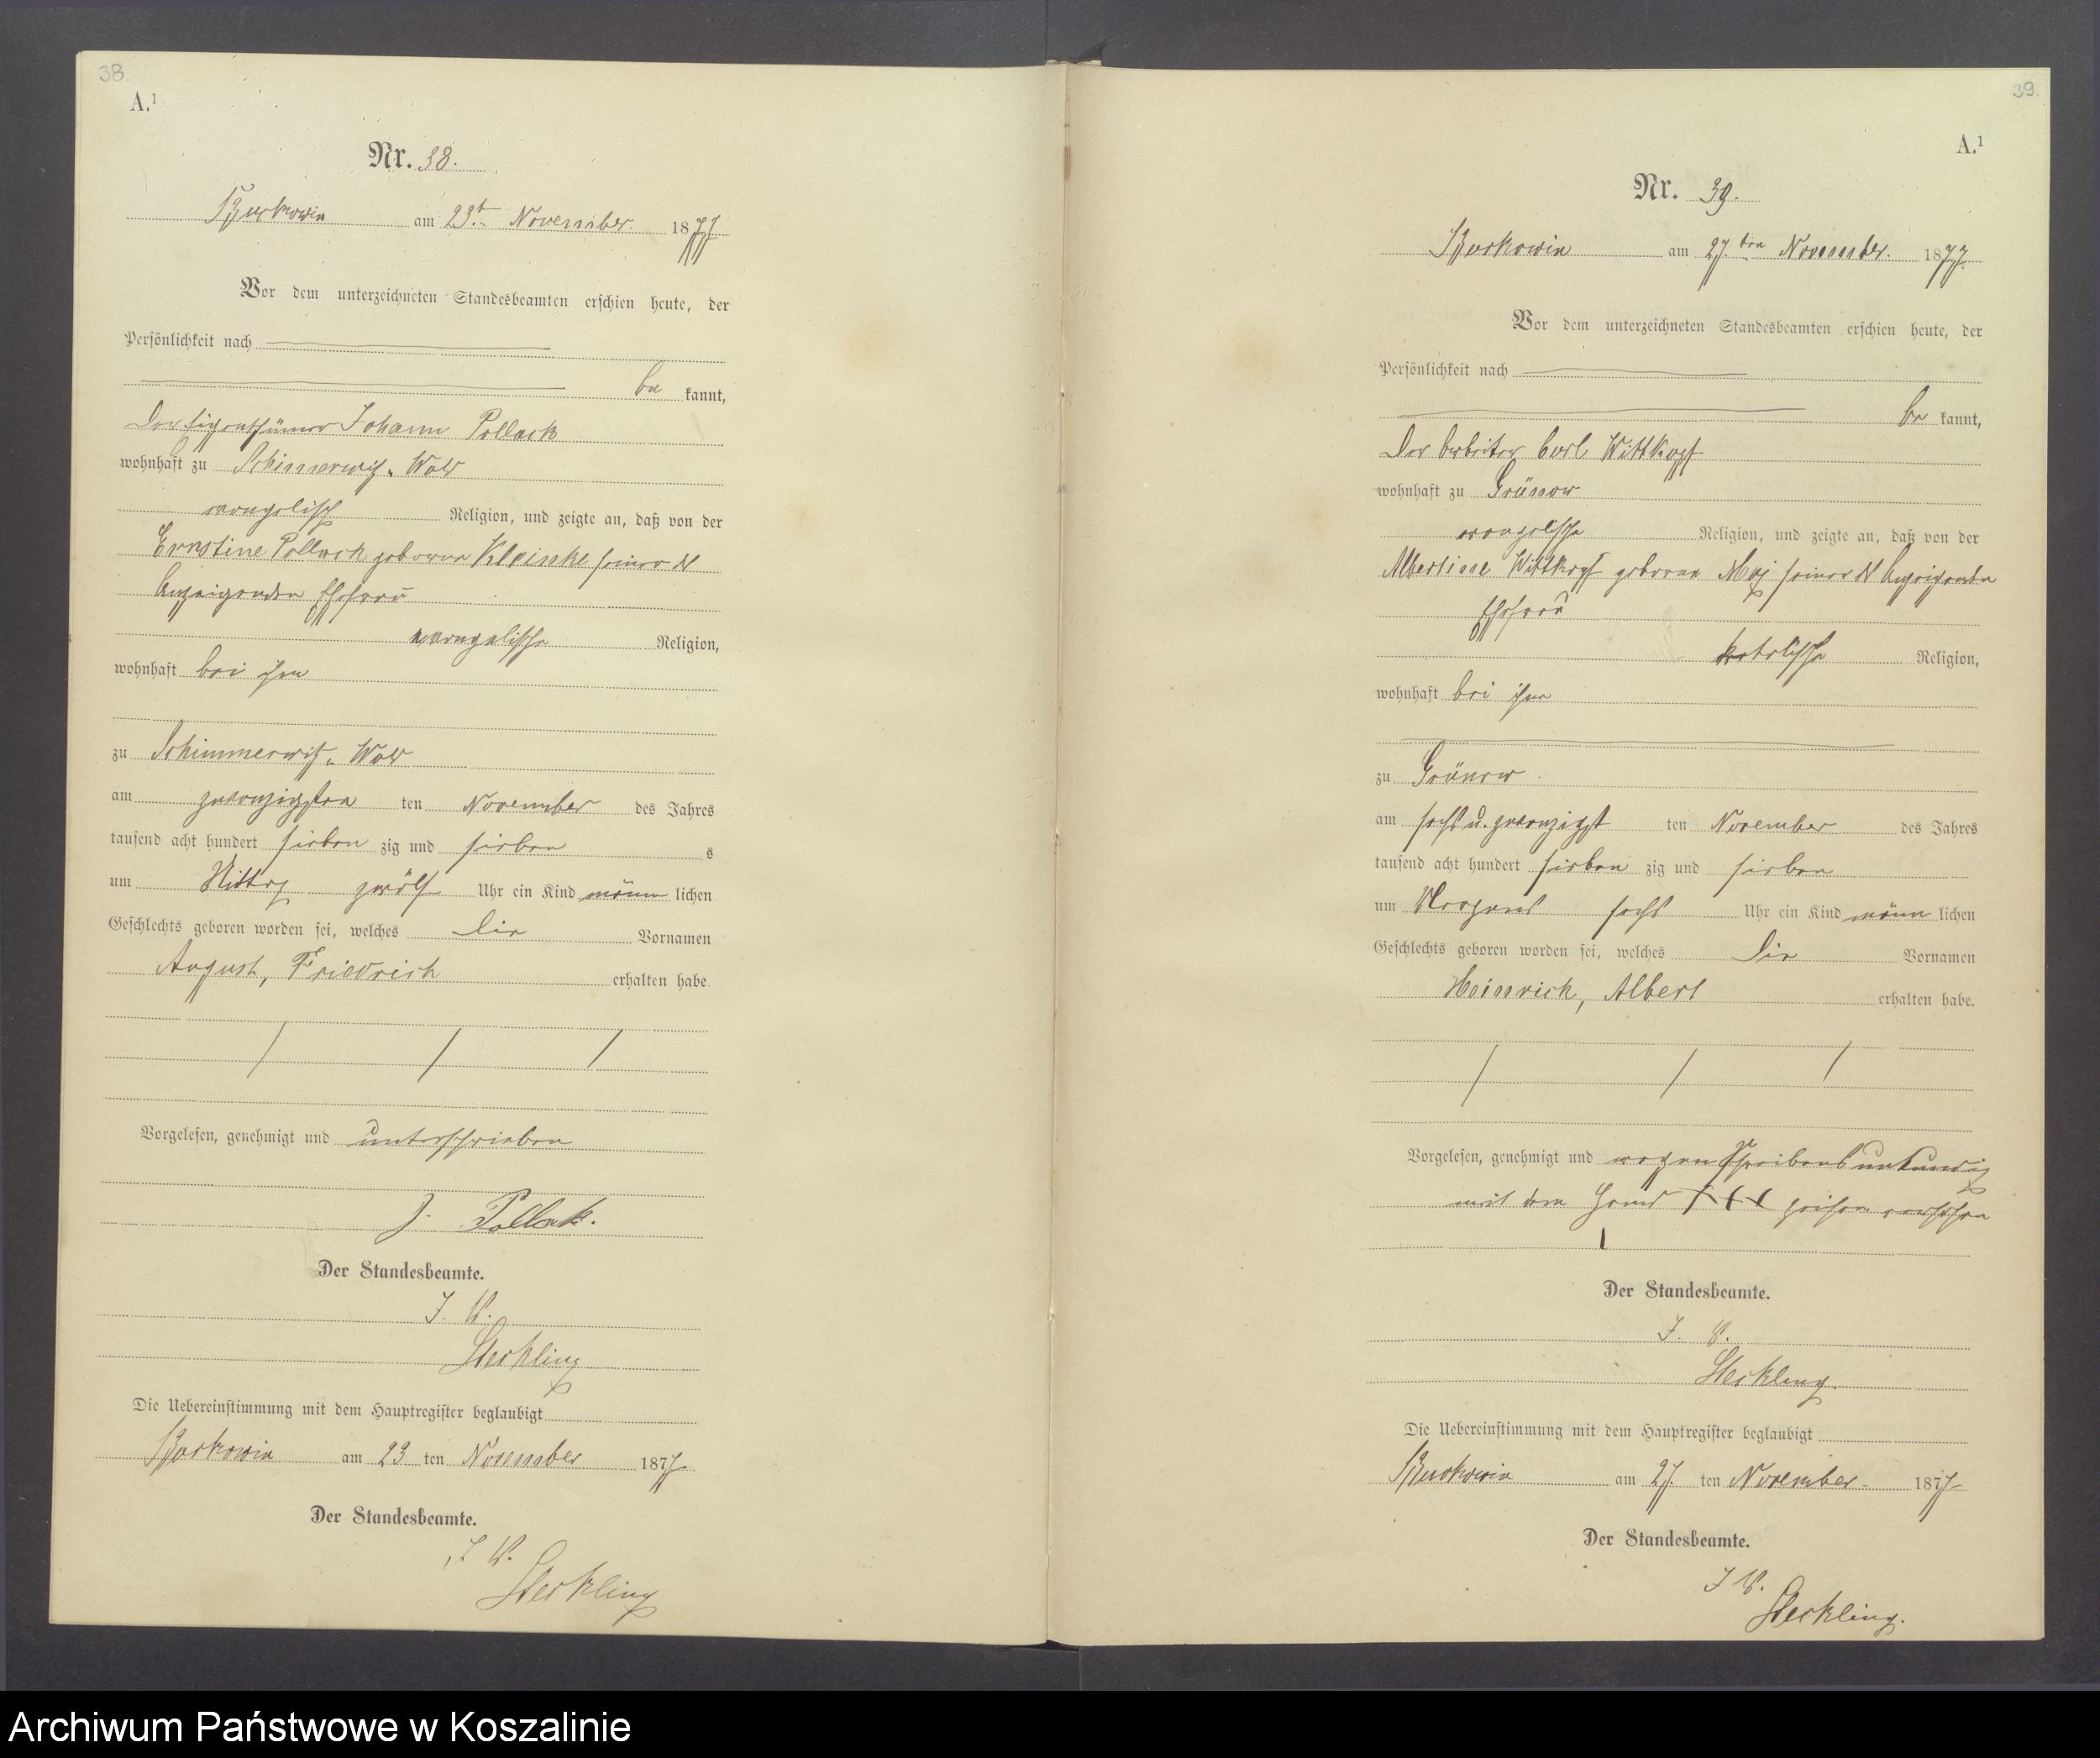 38.
A.¹
Nr. 38.
Burkowin am 23.t November 1877
Vor dem unterzeichneten Standesbeamten erschien heute, der
Persönlichkeit nach
be kannt,
Der Eigenthümer Johann Pollack
wohnhaft zu Schimerwitz Wald
evangelisch Religion, und zeigte an, daß von der
Ernstine Pollack geborene Kleinke seiner des
Anzeigenden Ehefrau
evangelische Religion,
wohnhaft bei ihm
zu Schimmerwitz Wald
am zwanzigsten ten November des Jahres
tausend acht hundert sieben zig und sieben s
um Mittag zwölf Uhr ein Kind männ lichen
Geschlechts geboren worden sei, welches die Vornamen
August, Friedrich erhalten habe.
Vorgelesen, genehmigt und unterschrieben
J. Pollak.
Der Standesbeamte.
J. V.
Steckling
Die Uebereinstimmung mit dem Hauptregister beglaubigt
Burkowin am 23 ten November 1877
Der Standesbeamte.
J V.
Steckling
39.
A.¹
Nr. 39.
Burkowin am 27.ten November. 1877.
Vor dem unterzeichneten Standesbeamten erschien heute, der
Persönlichkeit nach
be kannt,
Der Arbeiter Carl Wittkopf
wohnhaft zu Grünow
evangelische Religion, und zeigte an, daß von der
Albertine Wittkopf geborene seiner des Anzeigenden
Ehefrau
katolische Religion,
wohnhaft bei ihm
zu Grünow
am sechs u. zwanzigst ten November des Jahres
tausend acht hundert sieben zig und sieben
um Morgens sechs Uhr ein Kind männ lichen
Geschlechts geboren worden sei, welches die Vornamen
Heinrich, Albert erhalten habe.
Vorgelesen, genehmigt und wegen Schreibensunkundig
mit dem Hand +++ zeichen versehen
Der Standesbeamte.
J. V.
Steckling.
Die Uebereinstimmung mit dem Hauptregister beglaubigt
Burkowin am 27. ten November 1877
Der Standesbeamte.
J V.
Steckling.
Archiwum Państwowe w Koszalinie